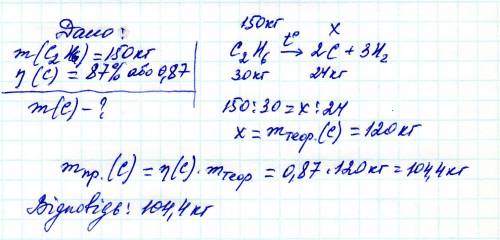 Дано:
m(C₂H₆)=150кг
η(C)=87% або 0,87
m(C)-?
150кг x
C₂H₆ t°→ 2C + 3H₂
30кг 24кг
150:30=x:24
x=mтеор.(C)=120кг
mпр.(C)=η(C)·mтеор=0,87·120кг=104,4кг
Відповідь: 104,4кг